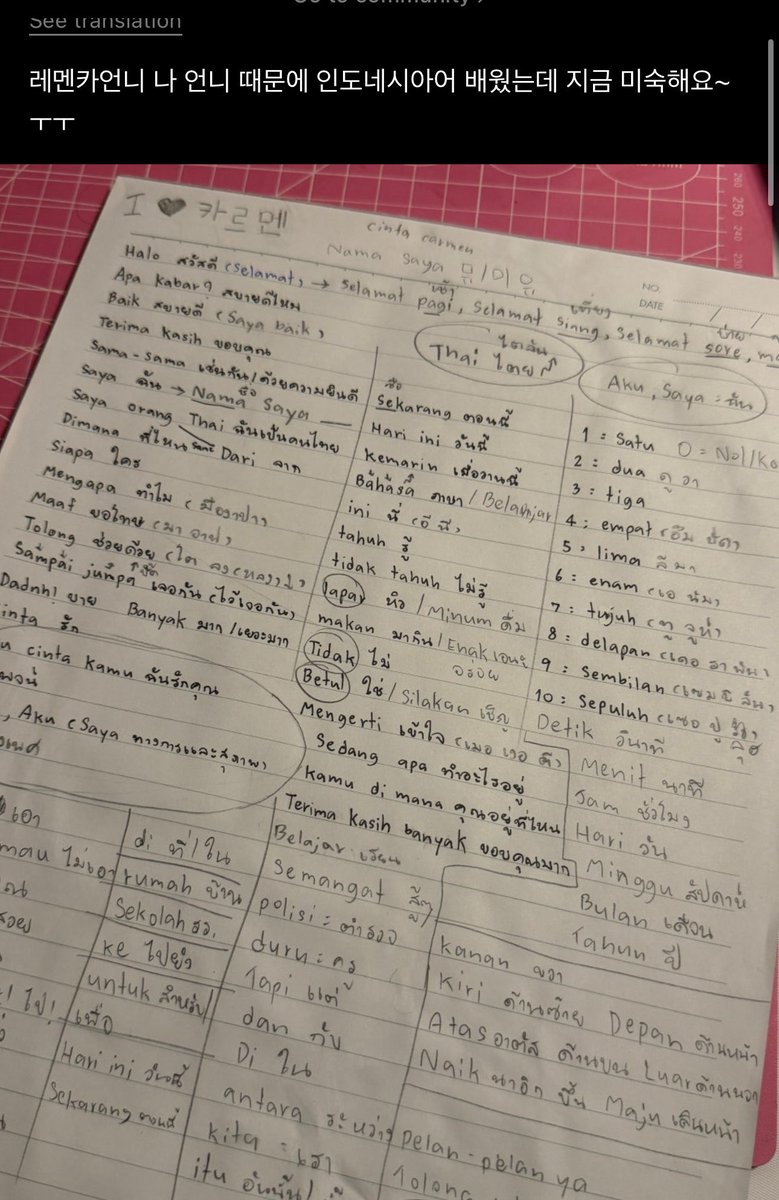 See translation
레멘카언니 나 언니 때문에 인도네시아어 배웠는데 지금 미숙해요~
ㅜㅜ
I ♥ 카르멘
cinta carmen
Nama saya
NO.
DATE
Halo สวัสดี (selamat) → selamat pagi, selamat siang, selamat sore,
เช้า เที่ยง บ่าย
Apa kabar? สบายดีไหม
Baik สบายดี (saya baik)
Terima kasih ขอบคุณ
Sama-sama เช่นกัน/ด้วยความยินดี
Saya ฉัน → Nama ชื่อ Saya
Saya orang Thai ฉันเป็นคนไทย
Dimana ที่ไหน Dari จาก
Siapa ใคร
Mengapa ทำไม
Maaf ขอโทษ
Tolong ช่วยด้วย
Sampai jumpa เจอกัน
Banyak มาก/เยอะมาก
cinta รัก
cinta kamu ฉันรักคุณ
, Aku (Saya ทางการและสุภาพ)
Thai ไทย
Aku, Saya = ฉัน
Sekarang ตอนนี้
Hari ini วันนี้
Kemarin เมื่อวานนี้
Bahasa ภาษา / Belanjar
ini นี่ (อี นี)
tahuh รู้
tidak tahuh ไม่รู้
lapar หิว / Minum ดื่ม
makan มากิน / Enak อร่อย
Tidak ไม่
Betul ใช่ / Silakan เชิญ
Mengerti เข้าใจ
Sedang apa ทำอะไรอยู่
kamu di mana คุณอยู่ที่ไหน
Terima kasih banyak ขอบคุณมาก
1 = Satu 0 = Nol/Ko
2 = dua ดู วา
3 = tiga
4 = empat
5 = lima ลี มา
6 = enam
7 = tujuh
8 = delapan
9 = Sembilan
10 = Sepuluh
Detik วินาที
Menit นาที
Jam ชั่วโมง
Hari วัน
Minggu สัปดาห์
Bulan เดือน
Tahun ปี
เอา
mau ไม่เอา
di ที่/ใน
rumah บ้าน
Sekolah รร.
ke ไปยัง
untuk สำหรับ/
เพื่อ
Hari ini วันนี้
Sekarang ตอนนี้
Belajar เรียน
Semangat สู้ๆ
polisi = ตำรวจ
duru = ครู
Tapi แต่
dan กับ
Di ใน
antara ระหว่าง
kita = เรา
itu
kanan ขวา
Kiri ด้านซ้าย Depan ด้านหน้า
Atas ด้านบน Luar ด้านนอก
Naik ขึ้น Maju เดินหน้า
pelan-pelan ya
Tolong